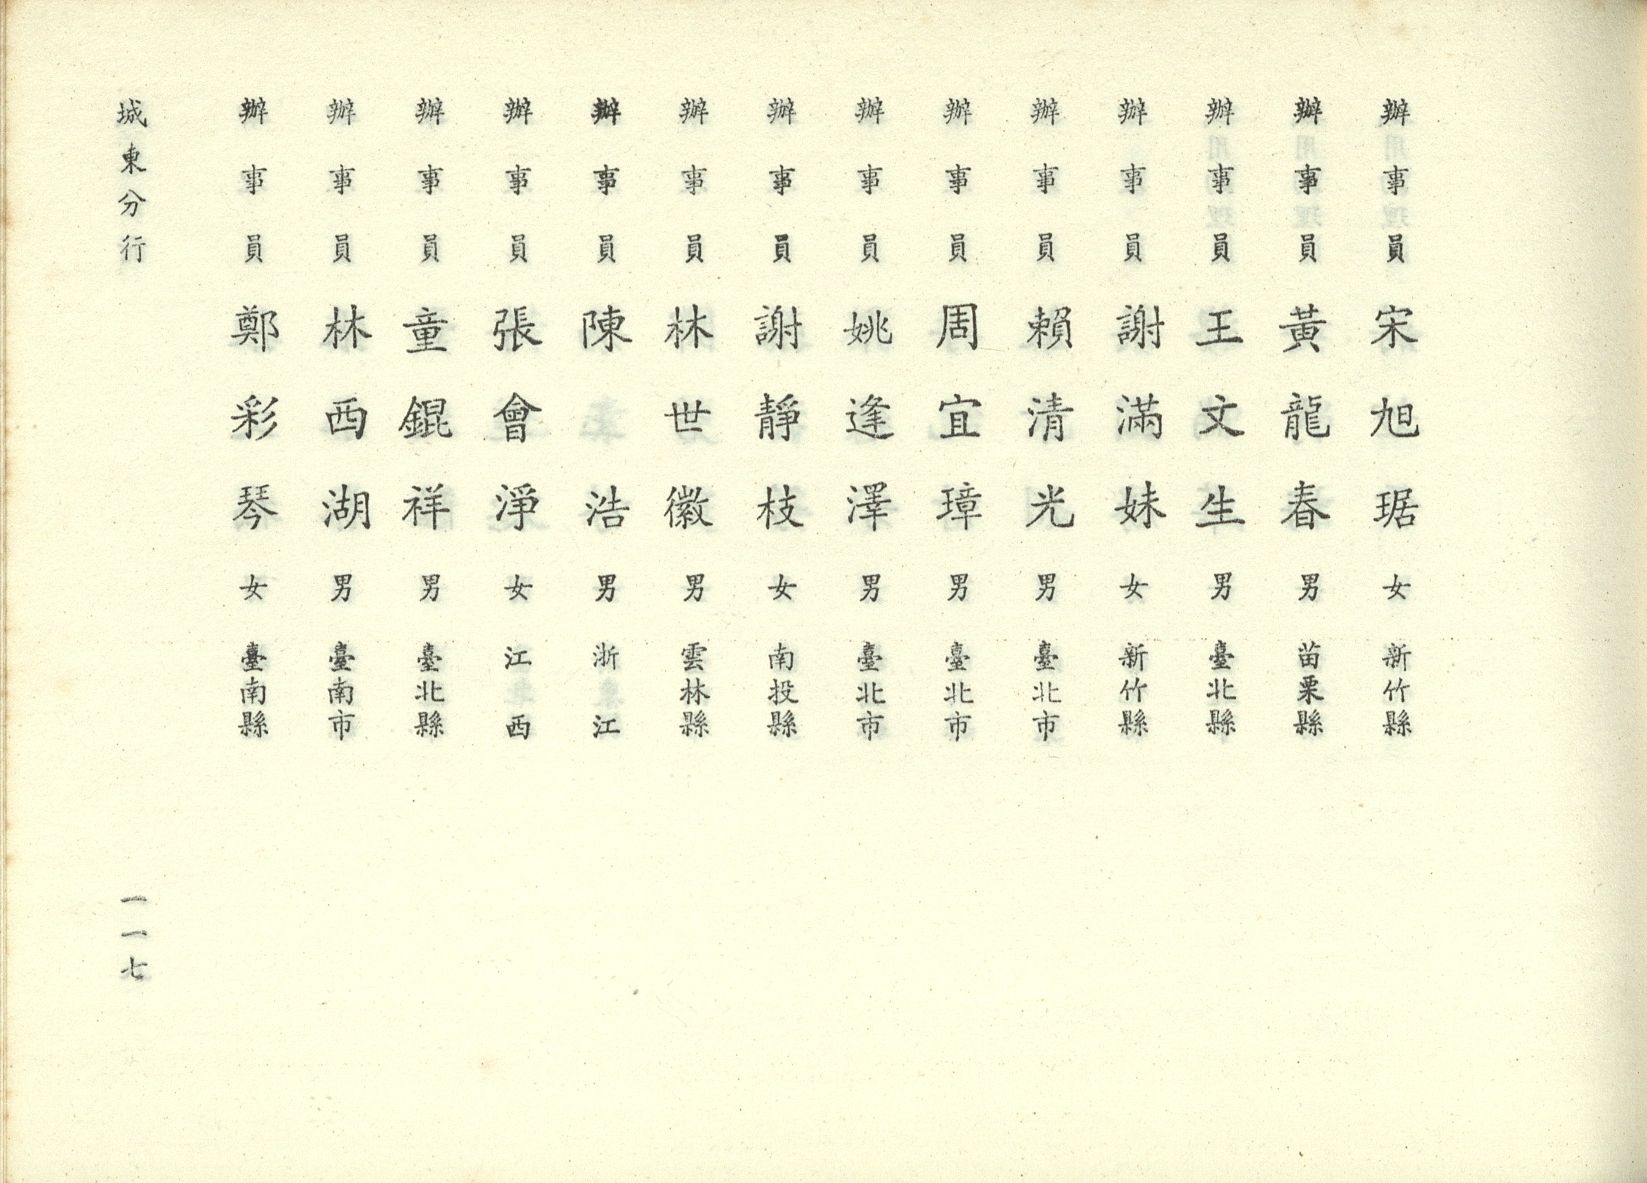 辦事員 宋旭琚 女 新竹縣
辦事員 黃龍春 男 苗栗縣
辦事員 王文生 男 臺北縣
辦事員 謝滿妹 女 新竹縣
辦事員 賴清光 男 臺北市
辦事員 周宜璋 男 臺北市
辦事員 姚逢澤 男 臺北市
辦事員 謝靜枝 女 南投縣
辦事員 林世徽 男 雲林縣
辦事員 陳浩 男 浙江
辦事員 張會淨 女 江西
辦事員 童錕祥 男 臺北縣
辦事員 林西湖 男 臺南市
辦事員 鄭彩琴 女 臺南縣
城東分行
一一七